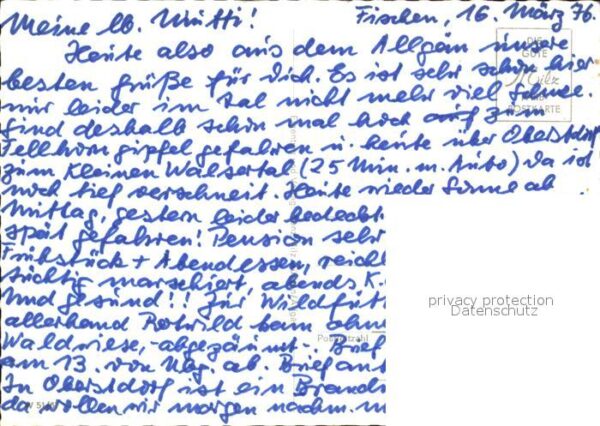 Meine lb. Mutti! Fischen, 16. März 76.
Heute also aus dem Allgäu unsere
besten Grüße für Dich. Es ist sehr schön hier
nur leider im Tal nicht mehr viel Schnee.
Sind deshalb schon mal hoch auf zum
Fellhorngipfel gefahren u. heute über Oberstdorf
zum Kleinen Walsertal (25 Min. m. Auto) da ist
noch tief verschneit. Heute wieder Sonne ab
Mittag, gestern leider bedeckt.
spät gefahren! Pension sehr
Frühstück + Abendessen, reich
tüchtig marschiert, abends K.
Und gesund!! Zur Wildfütt
allerhand Rotwild kam
Waldwiese, abgezäunt. Brief
am 13. von Nbg. ab. Brief an
In Oberstdorf ist ein Brands
da wollen wir morgen nachm. m
DIE
GUTE
POSTKARTE
privacy protection
Datenschutz